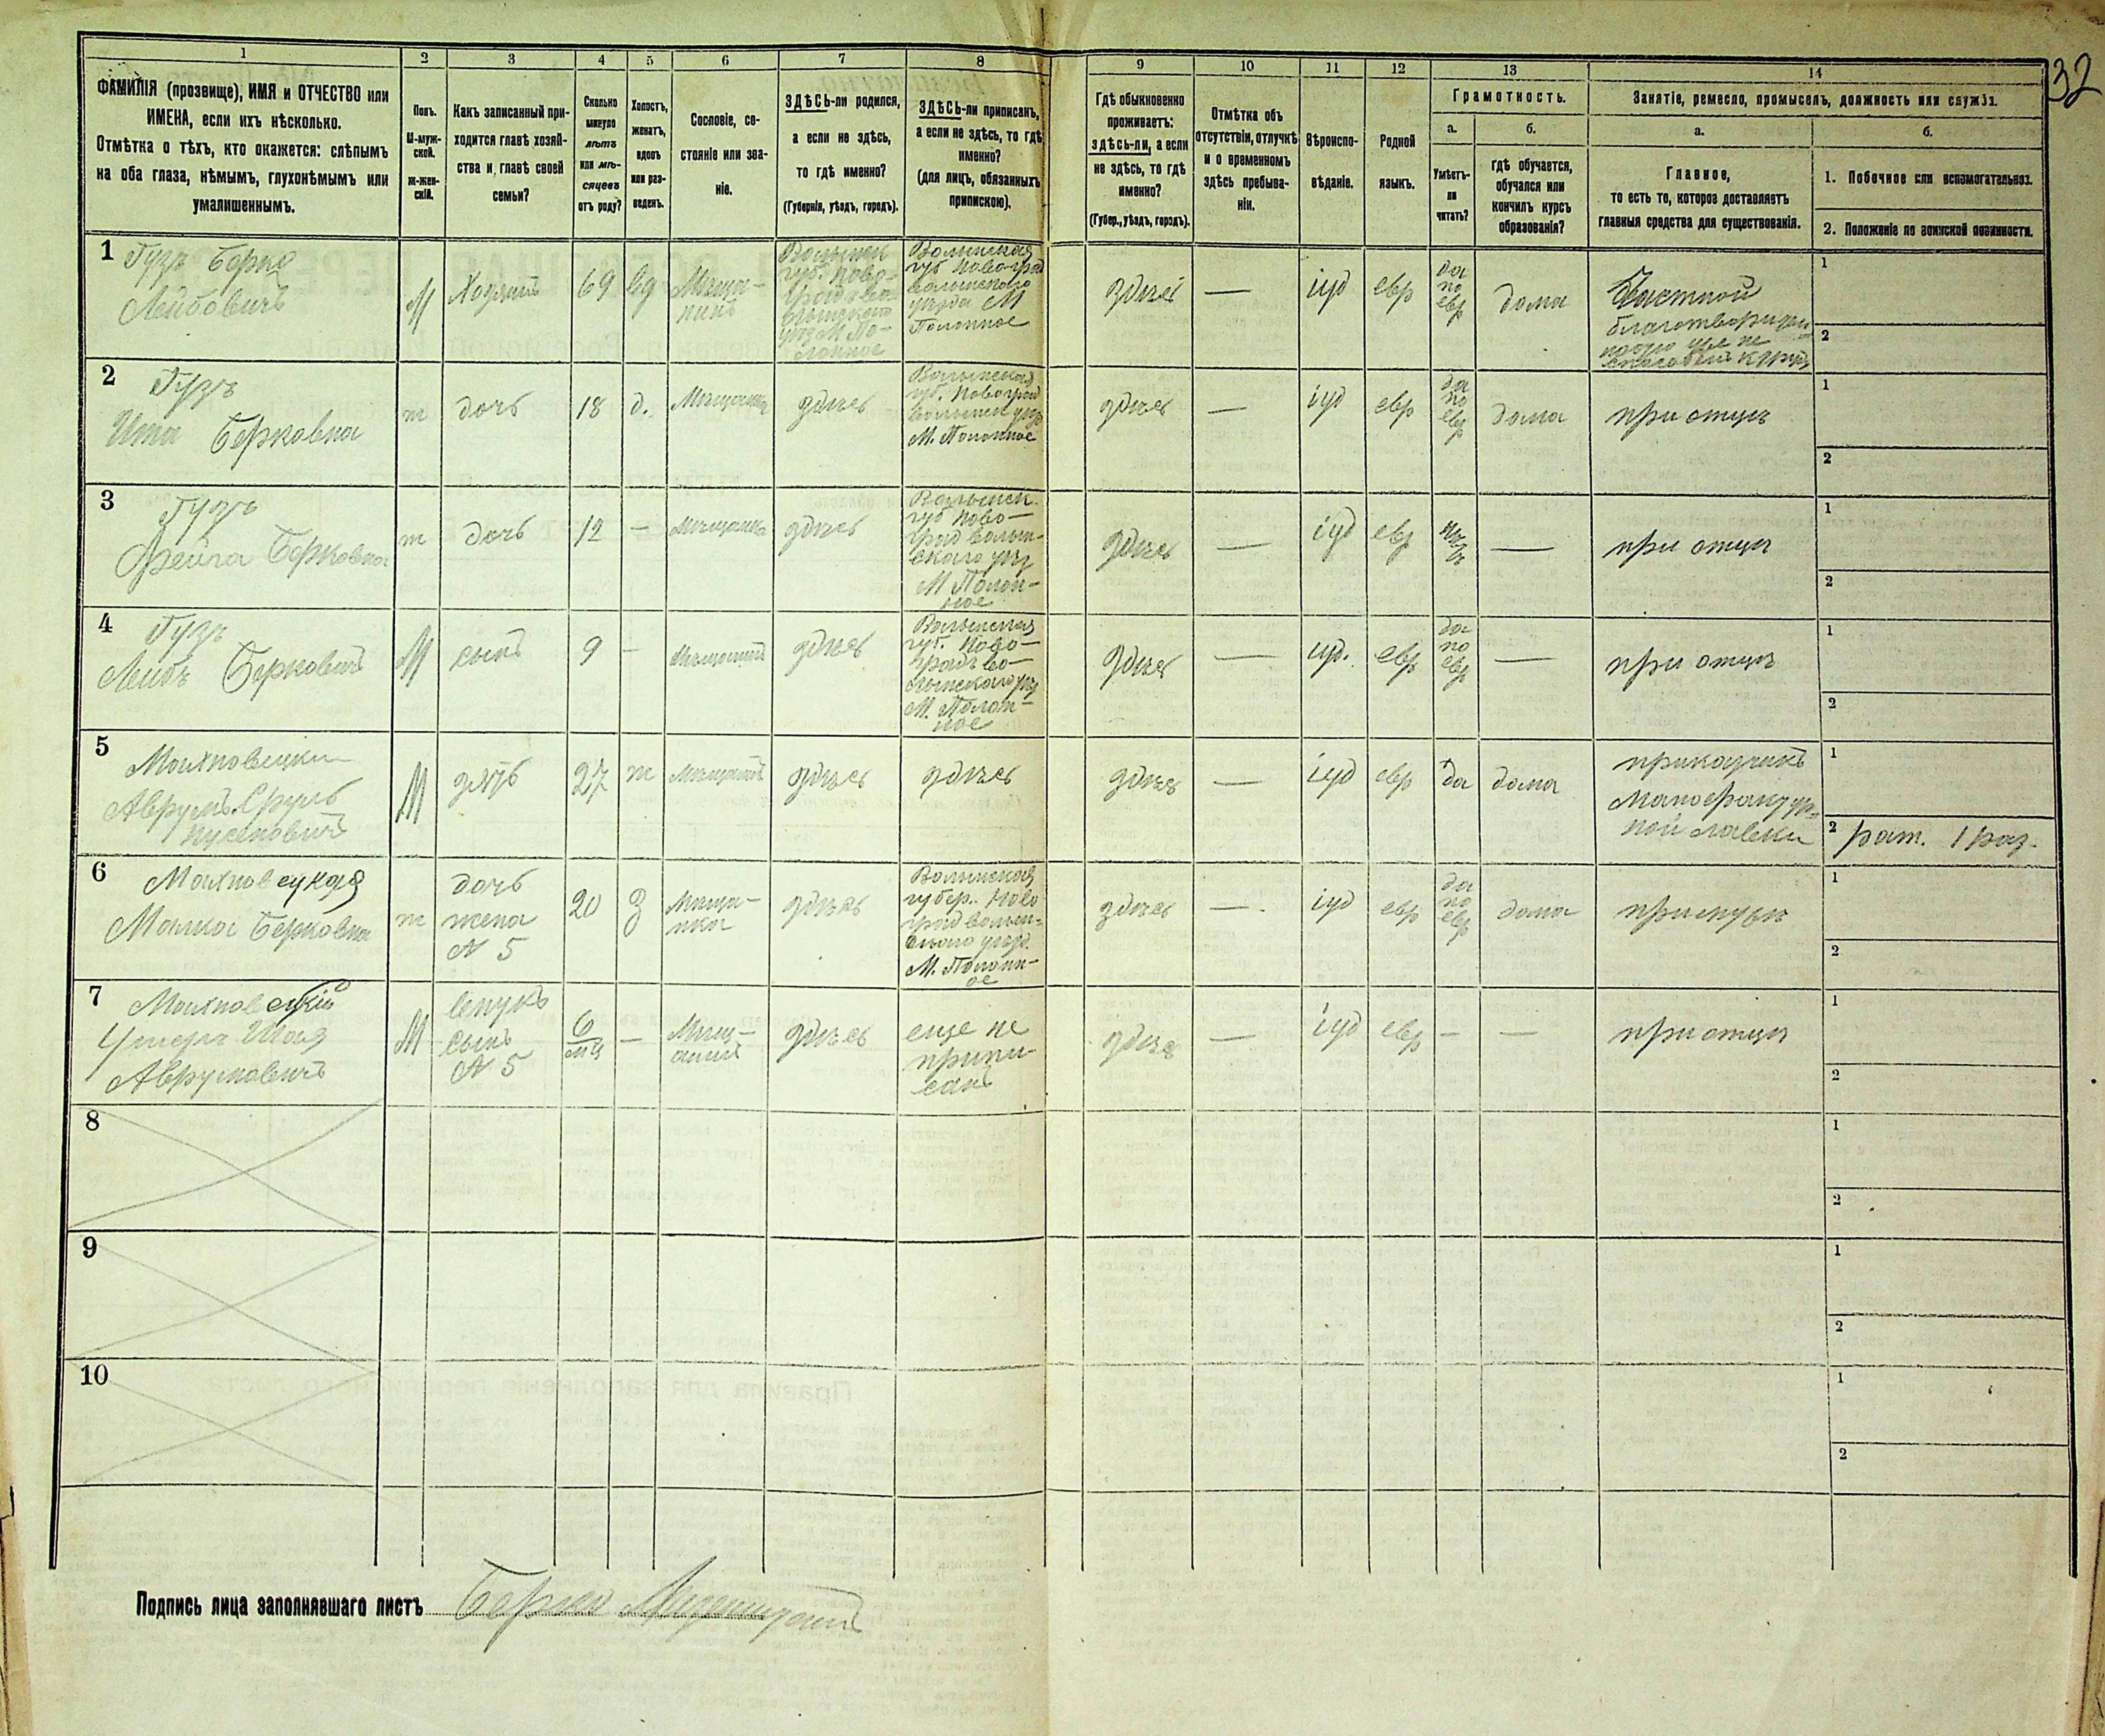 32
1
2
3
4
5
6
7
8
9
10
11
12
13
14
ФАМИЛІЯ (прозвище), ИМЯ и ОТЧЕСТВО или
ИМЕНА, если ихъ нѣсколько.
Отмѣтка о тѣхъ, кто окажется: слѣпымъ
на оба глаза, нѣмымъ, глухонѣмымъ или
умалишеннымъ.
Полъ.
М-муж-
ской.
ж-жен-
скій.
Какъ записанный при-
ходится главѣ хозяй-
ства и главѣ своей
семьи?
Сколько
минуло
лѣтъ
или мѣ-
сяцевъ
отъ роду?
Холостъ,
женатъ,
вдовъ
или раз-
веденъ.
Сословіе, со-
стояніе или зва-
ніе.
ЗДѢСЬ-ли родился,
а если не здѣсь,
то гдѣ именно?
(Губернія, уѣздъ, городъ).
ЗДѢСЬ-ли приписанъ,
а если не здѣсь, то гдѣ
именно?
(для лицъ, обязанныхъ
припискою).
Гдѣ обыкновенно
проживаетъ:
здѣсь-ли, а если
не здѣсь, то гдѣ
именно?
(Губер., уѣздъ, городъ).
Отмѣтка объ
отсутствіи, отлучкѣ
и о временномъ
здѣсь пребыва-
ніи.
Вѣроиспо-
вѣданіе.
Родной
языкъ.
Грамотность.
а.
Умѣетъ-
ли
читать?
б.
Гдѣ обучается,
обучался или
кончилъ курсъ
образованія?
Занятіе, ремесло, промыселъ, должность или служба.
а.
Главное,
то есть то, которое доставляетъ
главныя средства для существованія.
б.
1. Побочное или вспомогательное.
2. Положеніе по воинской повинности.
1
Гузъ Берко
Лейбовичъ
М
Хозяинъ
69
вд
Мѣща-
нинъ
Волынск
губ. Ново-
градъ во-
лынского
уѣз М По-
лонное
Волынская
губ Новоград
волынского
уѣзда М
Полонное
здѣсь
—
іуд
евр
да
по
евр
дома
Частной
1
2
2
Гузъ
Ита Берковна
ж
дочь
18
д.
Мѣщанка
здѣсь
Волынская
губ. Новоград
волынск уѣз
М. Полонное
здѣсь
—
іуд
евр
да
по
евр
дома
при отцѣ
1
2
3
Гузъ
Фейга Берковна
ж
дочь
12
—
Мѣщанка
здѣсь
Волынск.
губ Ново-
град волын-
ского уѣз
М Полон-
ное
здѣсь
—
іуд
евр
нѣ-
тъ
—
при отцѣ
1
2
4
Гузъ
Лейбъ Берковичъ
М
сынъ
9
—
Мѣщанинъ
здѣсь
Волынская
губ. Ново-
градъ во-
лынского уѣз
М. Полон-
ное
здѣсь
—
іуд.
евр
да
по
евр
—
при отцѣ
1
2
5
Махновецки
Аврумъ Сруль
М
зять
27
ж
Мѣщанинъ
здѣсь
здѣсь
здѣсь
—
іуд
евр
да
дома
приказчикъ
Манофактур-
ной лавки
1
2 рат. 1 раз.
6
Махновецкая
Малка Берковна
ж
дочь
жена
№ 5
20
З
Мѣща-
нка
здѣсь
Волынская
губер. Ново
град волын-
ского уѣзд.
М. Полонн-
ое
здѣсь
—.
іуд
евр
да
по
евр
дома
при мужѣ
1
2
7
Махновецкій
Шая
Аврумовичъ
М
внукъ
сынъ
№ 5
6
мц
—
Мѣщ-
анинъ
здѣсь
еще не
припи-
санъ
здѣсь
—
іуд
евр
—
—
при отцѣ
1
2
8
1
2
9
1
2
10
1
2
Подпись лица заполнявшаго листъ Берко